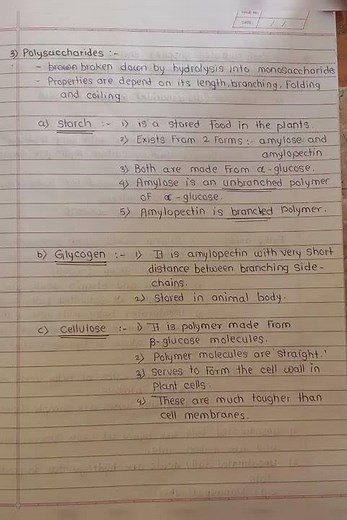 3) Polysaccharides :-
- brown broken down by hydrolysis into monosaccharide
- Properties are depend on its length, branching, folding
and coiling.
a) Starch :- 1) is a stored food in the plants.
2) Exists from 2 forms :- amylose and
amylopectin.
3) Both are made from α-glucose.
4) Amylose is an unbranched polymer
of α-glucose.
5) Amylopectin is brancled polymer.
b) Glycogen :- 1) It is amylopectin with very short
distance between branching side-
chains.
2) stored in animal body.
c) Cellulose :- 1) It is polymer made from
β-glucose molecules.
2) Polymer molecules are straight.
3) Serves to form the cell wall in
plant cells
4) These are much tougher than
cell membranes.